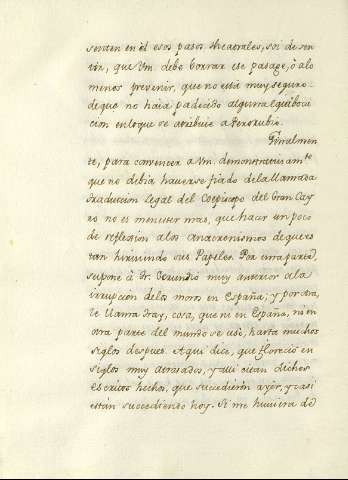 senten en èl esos pasos theatrales, soi de sen
tir, que Vm. debe borrar ese pasage, ô alo
menos prevenir, que no està muy seguro
de que no haia padecido alguna equiboca
cion enloque se atribuie a Ferorubio.
Finalmen
te, para convencer a Vm. demonstrativam.te
que no debia haverse fiado dela llamada
traducion legal del Coepiscopo del Gran Cay
ro no es menester mas, que hacer un poco
de reflexion alos anacronismos de que es
tan hirviendo sus Papeles. Por una parte
supone à Fr. Gerundio muy anterior ala
irrupcion delos moros en España; y por otra,
le llama fray, cosa, que ni en España, ni en
otra parte del mundo se usò, hasta muchos
siglos despues. Aqui dice, que floreciò en
siglos muy atrasados, y alli citan dichos
escritos hechos, que succedieron ayer, y casi
estàn succediendo hoy. Si me huviera de